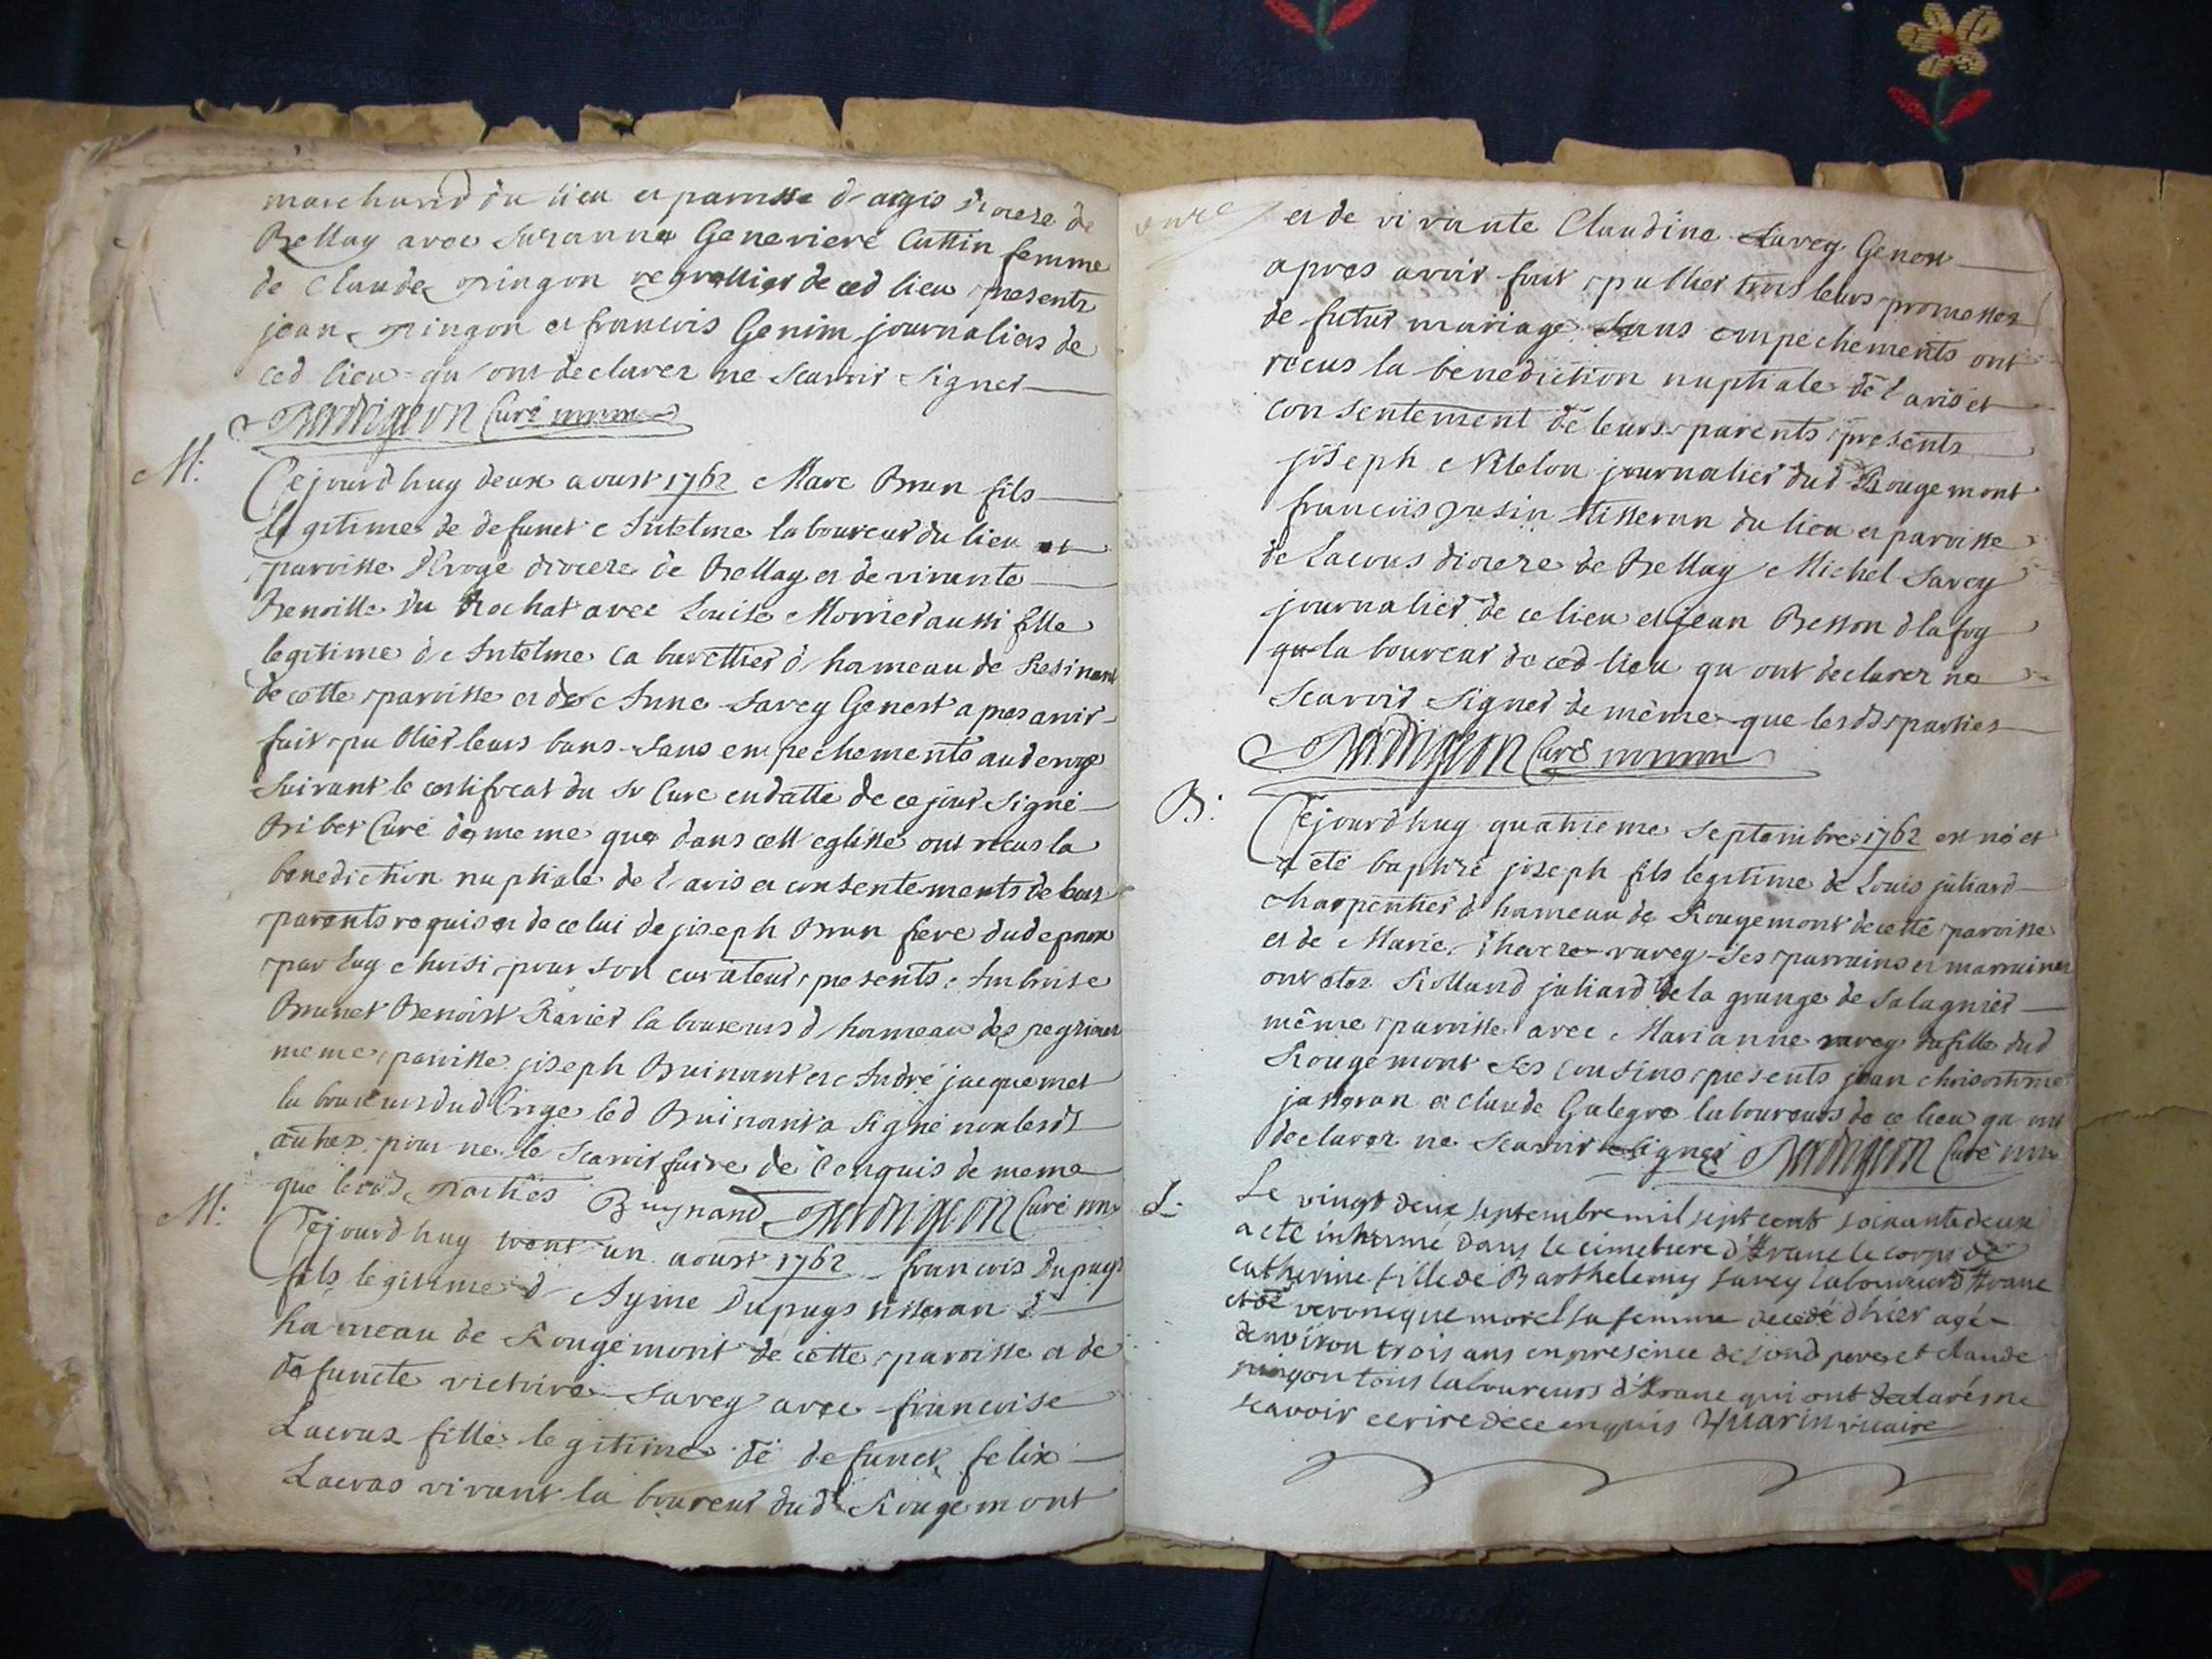 marchand du lieu et paroisse d argis diocese de
Bellay avec Suzanne Genevieve Cuttin femme
de Claude pingon regrattier de ced lieu presents
jean pingon et francois Genim journaliers de
ced lieu qu ont declarez ne scavoir signer
Curé
M:
Cejourdhuy deux aoust 1762 Marc Brun fils
legitime de defunct Antelme laboureur du lieu et
paroisse diocese de Bellay et de vivante
Benoitte du Rochat avec Louise Morrier aussi fille
legitime de Antelme cabarettier d hameau de Resinand
de cette paroisse et de Anne Savey Genest apres avoir
fait publier leurs bans sans empechements aud
suivant le certificat du sr Curé en datte de ce jour signé
Bribet Curé de meme que dans cett eglisse ont recus la
benediction nuptiale de l avis et consentements de leurs
parents requis et de celui de joseph Brun frere dud epoux
par luy choisi pour son curateur presents Ambroise
Brunet Benoist Ravier laboureurs d hameau des
meme paroisse joseph Buinant et André jacquemet
laboureurs dud led Buinant a signé non lesd
autres pour ne le scavoir faire de ce enquis de meme
que lesd parties Buynand Curé
M:
Cejourdhuy trent un aoust 1762 francois Dupuys
fils legitime d Ayme Dupuys tisseran d
hameau de Rougemont de cette paroisse et de
defuncte victoire Savey avec francoise
Lacras fille legitime de defunct felix
Lacras vivant laboureur dud Rougemont
et de vivante Claudine Savey Genest
apres avoir fait publier trois leurs promesses
de futur mariage sans empechements ont
recus la benediction nuptiale de l avis et
consentement de leurs parents presents
joseph journalier dud Rougemont
francois tisseran du lieu et paroisse
de Lacous diocese de Bellay Michel Savey
journalier de ce lieu et jean Besson
laboureur de ced lieu qu ont declarez ne
scavoir signer de même que lesds parties
Curé
B:
Cejourdhuy quatrieme septembre 1762 est né et
a été baptizé joseph fils legitime de Louis juliard
charpentier d hameau de Rougemont de cette paroisse
et de Marie varey ses parrains et marraines
ont etez Rolland juliard de la grange de Salagnier
même paroisse avec Marianne varey fille dud
Rougemont ses cousins presents jean
et claude laboureurs de ce lieu qu ont
declarez ne scavoir signer Curé
S:
Le vingt deux septembre mil sept cent soixante deux
a eté inhumé dans le cimetiere d'Arane le corps de
catherine fille de Barthelemy Savey laboureur d'Arane
et de veronique morel sa femme decedé d'hier agé
d'environ trois ans en presence de sond pere et claude
pingon tous laboureurs d'Arane qui ont declarés ne
scavoir ecrire de ce enquis vicaire